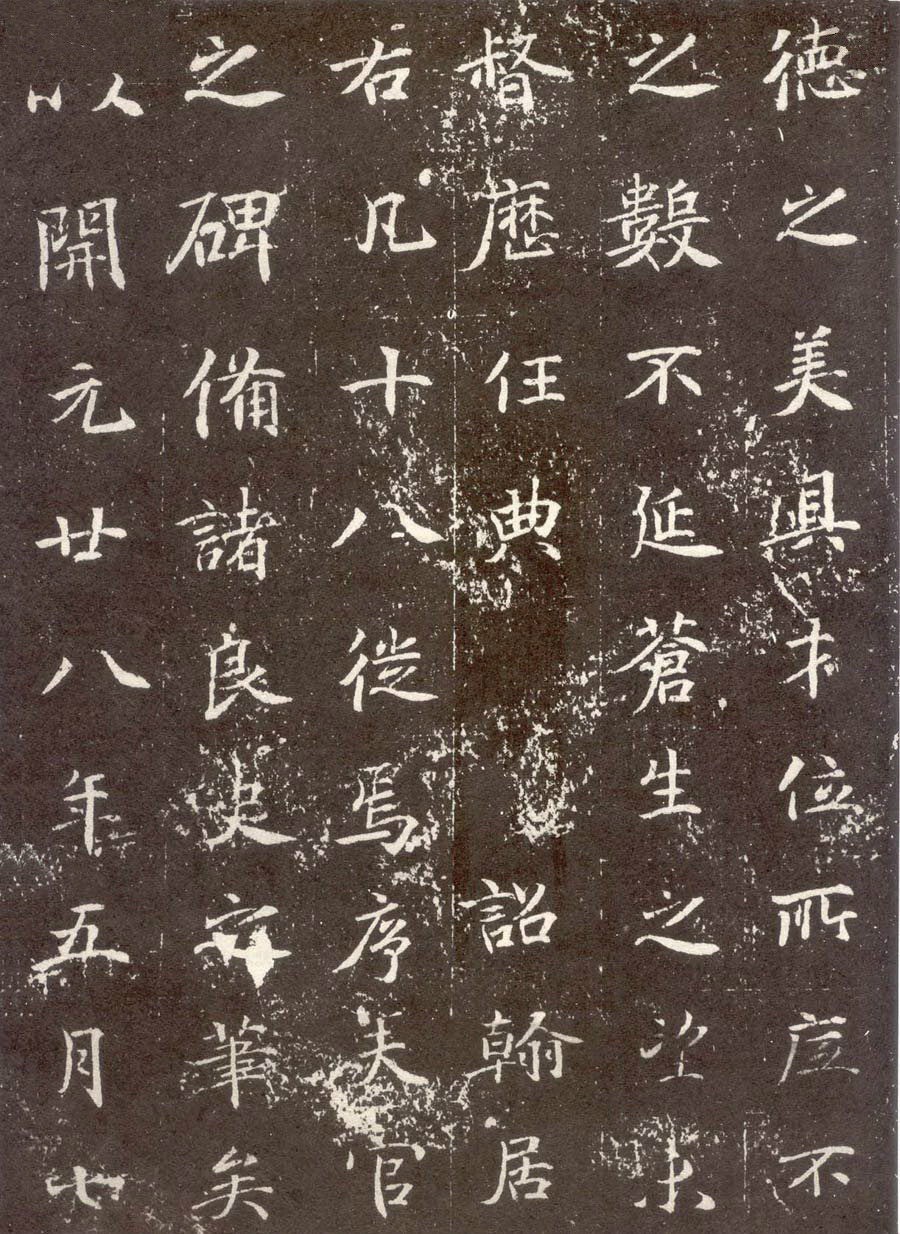 德之美才位所底不
之數不延蒼生之望未
督歷任典 詔翰居
右凡十八徙焉序夫官
之碑備諸良史筆矣
以開元廿八年五月七